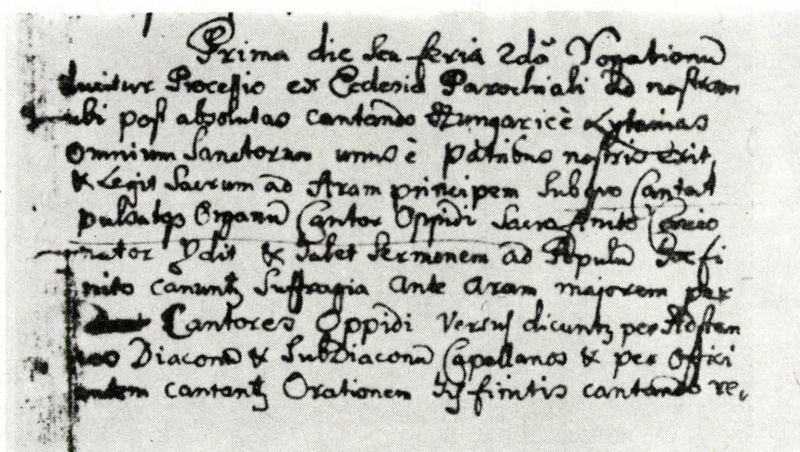 Prima die seu feria 2dâ Rogationū
ducitur Procesio ex Ecclesia Parochiali ad nostram
ubi post absolutas cantando Hungaricè Lytanias
omnium Sanctorum unus è patribus nostris exit,
& Legit Sacrum ad Aram principem Sub quo Cantat
pulsatqs Organū Cantor Oppidi Sacro finito
nator & habet Sermonem ad Populū Hoc fi
nito canuntz Suffragia Ante Aram majorem per
Cantores Oppidi Versus dicuntz per Adstan
Diaconū & SubDiaconū Capellanos & per offici
antem cantantz Orationem Iis finitis cantando re,